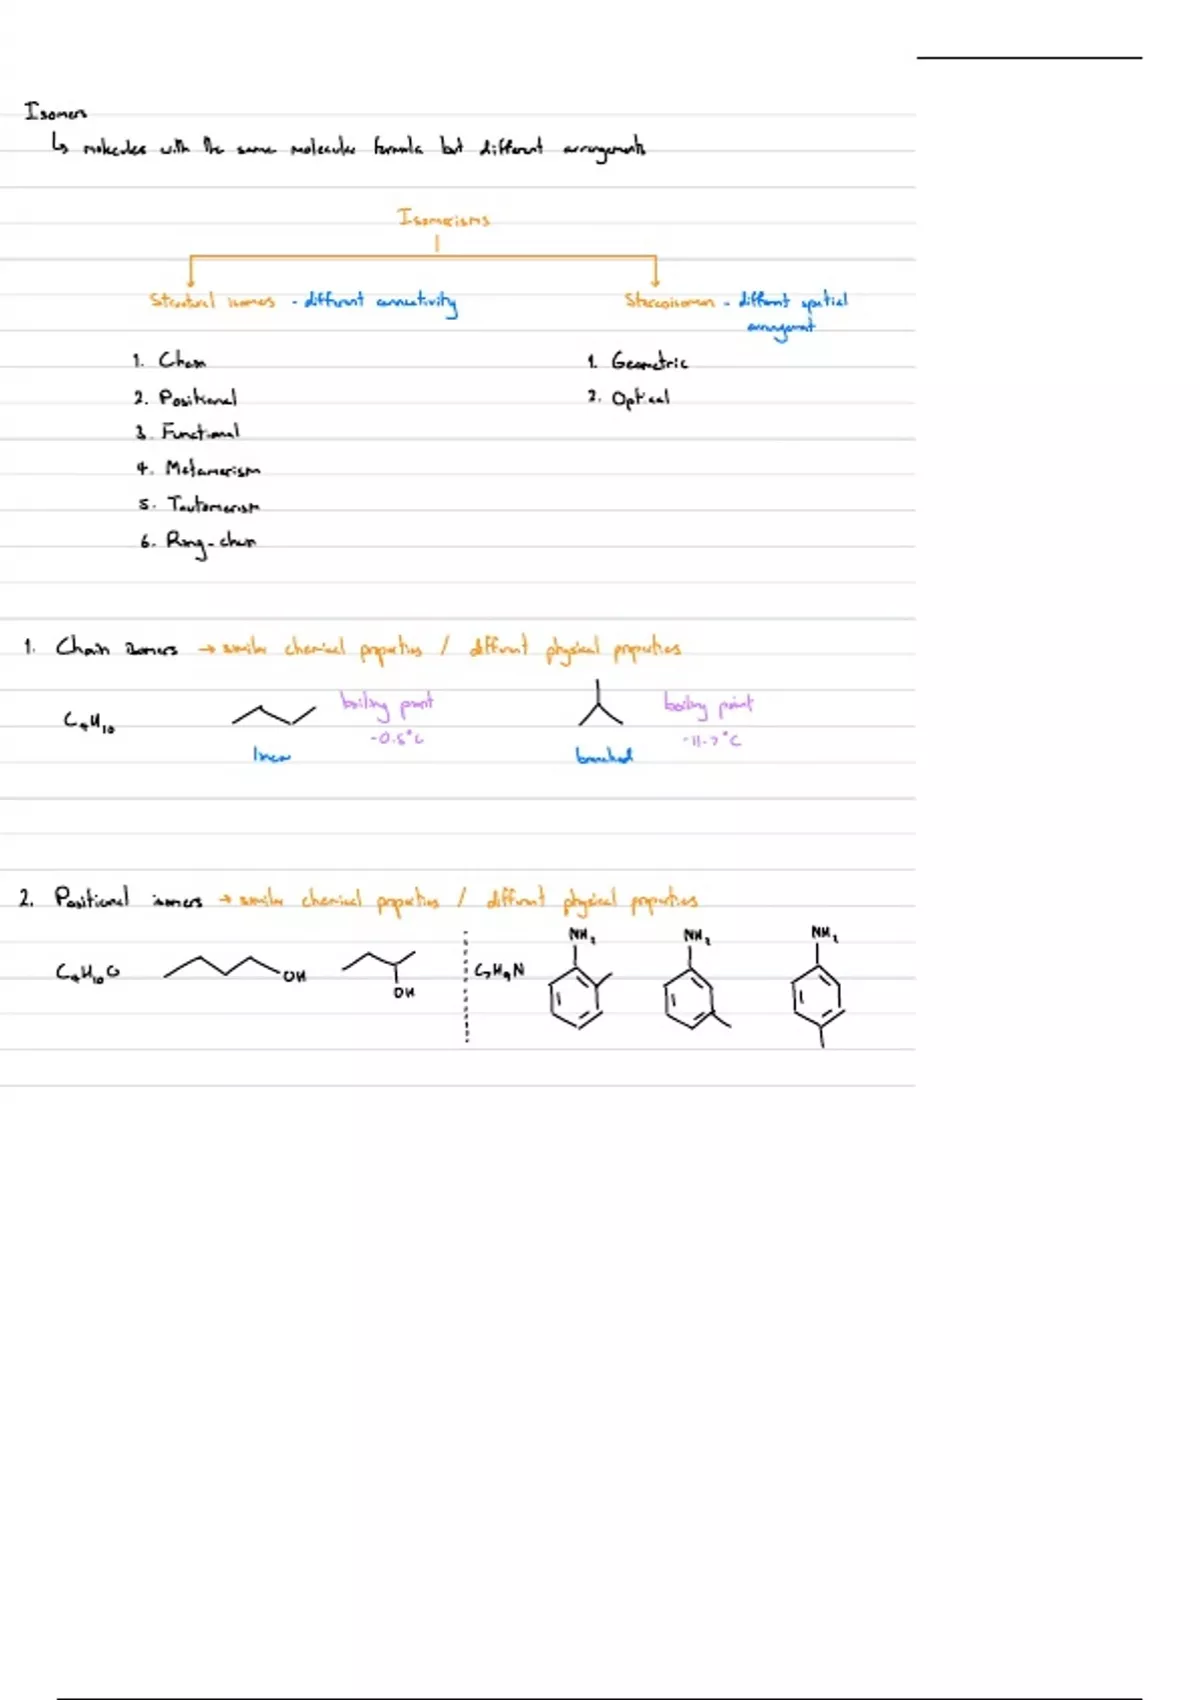 Isomers
↳ molecules with the same molecular formula but different arrangements
Isomerisms
Structural isomers - different connectivity
Stereoisomers - different spatial arrangement
1. Chain
2. Positional
3. Functional
4. Metamerism
5. Tautomerism
6. Ring-chain
1. Geometric
2. Optical
1. Chain isomers → similar chemical properties / different physical properties
C4H10
boiling point
-0.5°C
linear
boiling point
-11.7°C
branched
2. Positional isomers → similar chemical properties / different physical properties
C4H10O
OH
OH
C7H9N
NH2
NH2
NH2